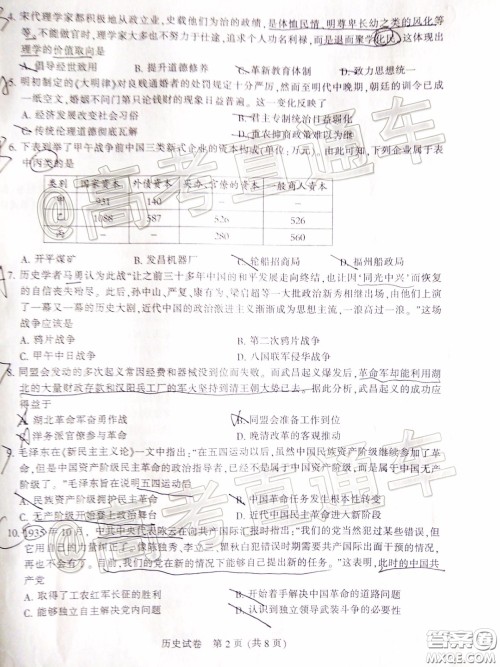 4. 宋代理学家都积极地从政立业，史载他们为治的政绩，是体恤民情、明尊卑长幼之类的风化等
等。不能做官时，理学家大多也不努力于仕途，追求个人功名利禄，而是退而聚学化民。这体现出
理学的价值取向是
A. 倡导经世致用 B. 提升道德修养 C. 革新教育体制 D. 致力思想统一
5. 明初制定的《大明律》对良贱通婚者的处罚规定十分严厉，然而至明代中晚期，朝廷的令到已成
一纸空文，婚姻不问门第只论钱财的现象日益普遍。这一变化反映了
A. 经济发展改变社会习俗 B. 君主专制统治日益弱化
C. 传统伦理道德彻底瓦解 D. 世表抑商政策难以为继
6. 下表列举了甲午战争前中国三类新式企业的资本构成（单位：万元）。由此可知，下列企业属于表
中丙类的是
类别 国家资本 外债资本 买办、官僚的资本 一般商人资本
甲 931 140 - -
乙 1088 587 526 280
丙 - - 526 560
A. 开平煤矿 B. 发昌机器厂 C. 轮船招商局 D. 福州船政局
7. 历史学者马勇认为此战“让之前三十多年中国的和平发展走向终结，也让因‘同光中兴’而恢复
的自信丧失殆尽。此后，孙中山、严复、康有为、梁启超等一大批政治新秀相继出场，由他们上演
了一幕又一幕的历史大剧，近代中国的政治激进主义渐渐成为思想主流，一浪高过一浪。”这场
战争应该是
A. 鸦片战争 B. 第二次鸦片战争
C. 甲午中日战争 D. 八国联军侵华战争
8. 同盟会发动的多次起义常因经费和器械没到位而失败。而武昌起义爆发后，革命军却能利用湖
北的大量财政存款和汉阳兵工厂的军火坚持到清王朝大势已去。据此分析，武昌起义的成功应
得益于
A. 湖北革命军奋勇作战 B. 同盟会准备工作到位
C. 洋务派官僚参与革命 D. 晚清改革的客观推动
9. 毛泽东在《新民主主义论》一文中指出：“在五四运动以后，虽然中国民族资产阶级继续参加了革
命，但是中国资产阶级民主革命的政治指导者，已经不是属于中国资产阶级，而是属于中国无产
阶级了。”毛泽东旨在说明五四运动后
A. 民族资产阶级拥护民主革命 B. 中国革命任务发生根本性转变
C. 无产阶级开始登上政治舞台 D. 近代中国民主革命进入新阶段
10. 1935年10月，中共中央代表陈云在向共产国际汇报时指出：“我们的党当然犯过某些错误，但
它用自己的力量纠正了。像陈独秀、李立三、瞿秋白犯错误时期需要共产国际出面干预的情况，
再也不会有了。目前，我们的党在新的情况下能够自己提出新的任务。”这表明，此时的中国共
产党
A. 取得了工农红军长征的胜利 B. 开始着手解决中国革命的道路问题
C. 能够独立自主解决党内问题 D. 认识到独立领导武装斗争的必要性
历史试卷 第2页（共8页）
@高考直通车
@高考直通车